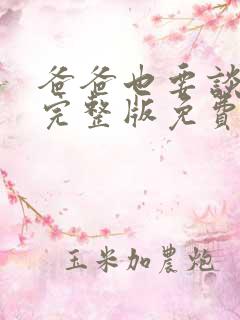 爸爸也要談
完整版免費
玉米加農炮